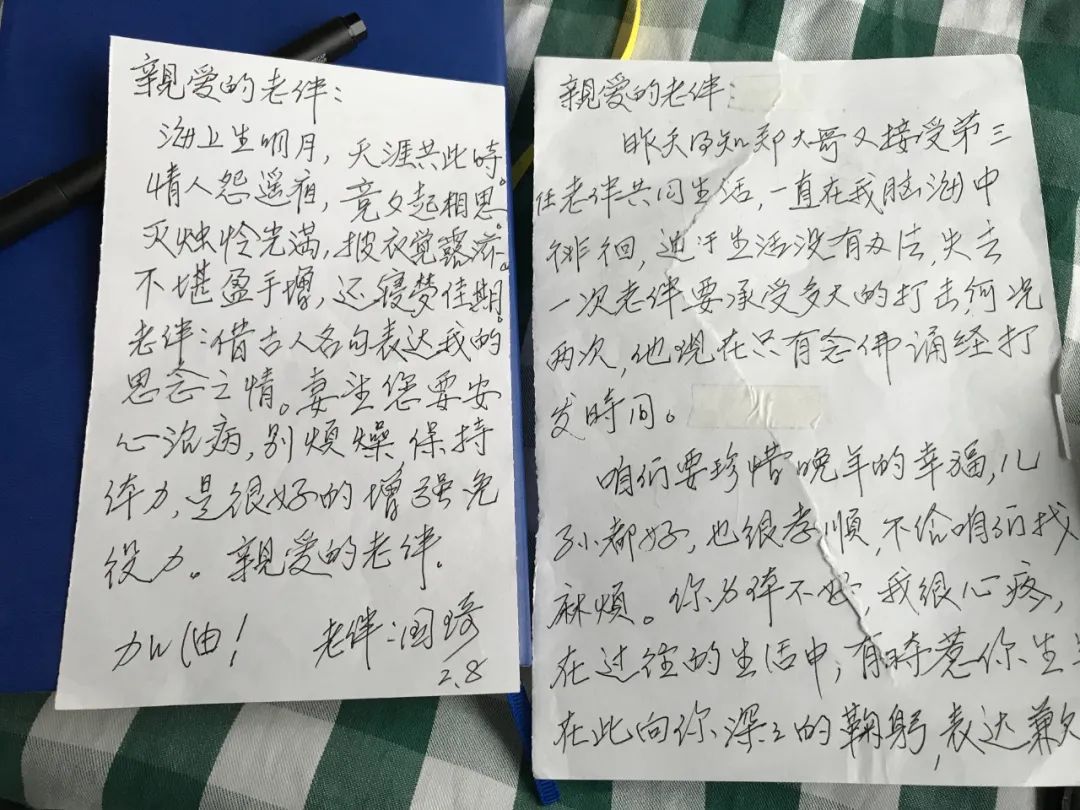 親爱的老伴：
海上生明月，天涯共此時。
情人怨遥夜，竟夕起相思。
灭烛怜光满，披衣觉露滋。
不堪盈手增，还寝梦佳期。
老伴：借古人名句表达我的
思念之情。妻望您要安
心治病，别烦燥保持
体力，是很好的增强免
役力。親爱的老伴.
加油！ 老伴：国琦
2.8
親爱的老伴：
昨天得知郑大哥又接受第三
任老伴共同生活，一直在我脑海中
徘徊，迫于生活没有办法，失去
一次老伴要承受多大的打击，何况
两次，他现在只有念佛诵经打
发時间。
咱们要珍惜晚年的幸福，儿
孙都好，也很孝順，不给咱们找
麻烦。你身体不好，我很心疼，
在过往的生活中，有時惹你生
在此向你深々的鞠躬，表达歉